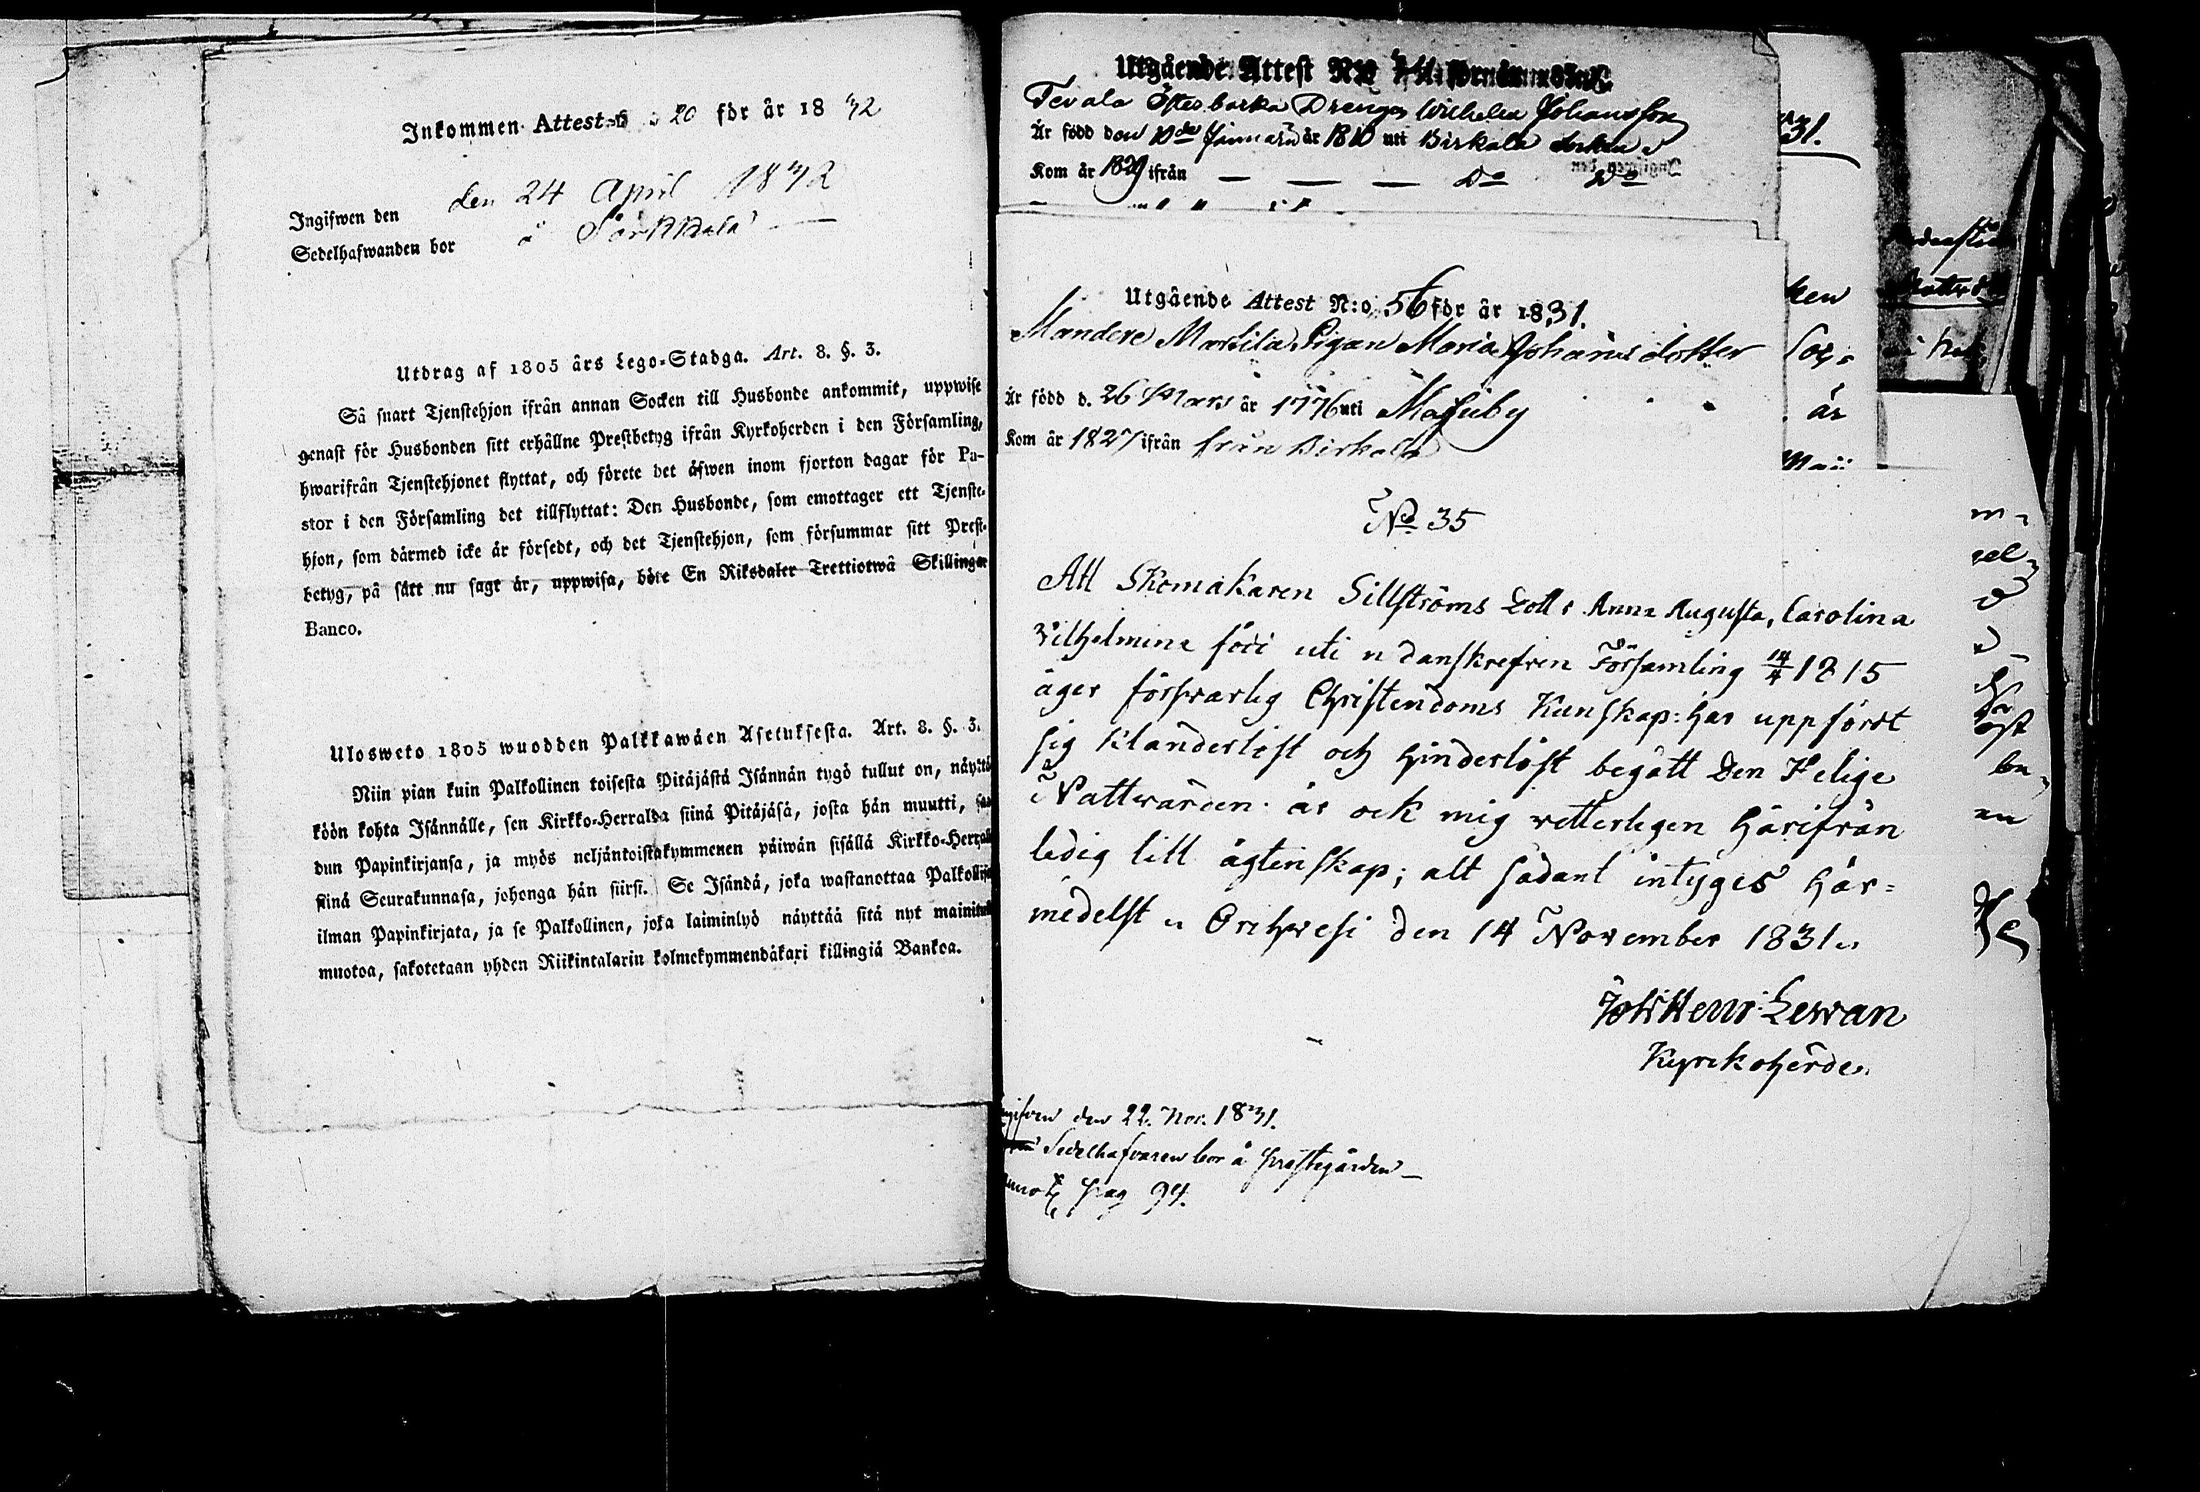 Inkommen Attest N:o 20 för år 1832
Ingifwen den den 24 April 1832
Sedelhafwanden bor å Särkkälä
Utdrag af 1805 års Lego-Stadga. Art. 8. §. 3.
Så snart Tjenstehjon ifrån annan Socken till Husbonde ankommit, uppwise
genast för Husbonden sitt erhållne Prestbetyg ifrån Kyrkoherden i den Församling,
hwarifrån Tjenstehjonet flyttat, och förete det äfwen inom fjorton dagar för Pa-
stor i den Församling det tillflyttat: Den Husbonde, som emottager ett Tjenste-
hjon, som därmed icke är försedt, och det Tjenstehjon, som försummar sitt Prest-
betyg, på sätt nu sagt är, uppwisa, böte En Riksdaler Trettiotwå Skillingar
Banco.
Ulosweto 1805 wuodden Palkkawäen Asetuksesta. Art. 8. §. 3.
Niin pian kuin Palkollinen toisesta Pitäjästä Isännän tygö tullut on, näyttä
köön kohta Isännälle, sen Kirkko-Herralda siinä Pitäjäsä, josta hän muutti, saa
dun Papinkirjansa, ja myös neljäntoistakymmenen päiwän sisällä Kirkko-Herralle
siinä Seurakunnasa, johonga hän siirsi. Se Isändä, joka wastanottaa Palkollisen
ilman Papinkirjata, ja se Palkollinen, joka laiminlyö näyttää sitä nyt mainitulla
muotoa, sakotetaan yhden Riikintalarin kolmekymmendäkaxi killingiä Bankoa.
Utgående Attest N:o
Tevala Östesbacka Drengen Wilhelm Johansson
Är född den 10de Januarii år 1810 uti Birkala Socken
Kom år 1829 ifrån — — — Do Do
Utgående Attest N:o 56 för år 1831.
Mandere Marttila Pigan Maria Johansdotter
Är född d. 26 Mars år 1776 uti Masuby
Kom år 1827 ifrån från Birkala
No 35
Att Skomakaren Sillströms Dottr Anna Augusta, Carolina
Vilhelmina född uti danskrefven Församling 14/4 1815
äger försvarlig Christendoms Kunskap: har uppfördt
sig klanderlöst och hinderlöst begått Den Helige
Nattvarden. är ock mig vetterligen härifrån
ledig till ägtenskap; alt sådant intyges här-
medelst Orihvesi den 14 November 1831.
Joh: Henr: Lewan
Kyrckoherde.
Ingifven den 22. Nov. 1831.
Sedelhafvaren bor å Prästegården —
pag 94.
31.
ken
är